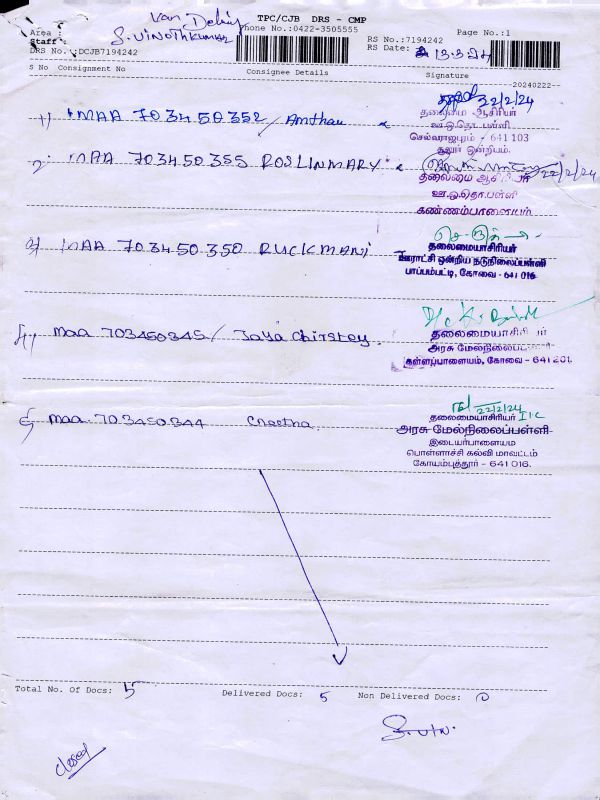 Van Delivy
TPC/CJB DRS - CMP
Area :
Phone No.:0422-3505555
Page No.:1
Staff :
S.VINOTHKUMAR
RS No.:7194242
DRS No.:DCJB7194242
RS Date: 13.3.24
S No Consignment No Consignee Details Signature
-20240222-
1) MAA 703450352 / Amthau 22/2/24
தலைமை ஆசிரியர்
ஊ.ஒ.தொ.பள்ளி
செல்வராஜபுரம் - 641 103
சூலூர் ஒன்றியம்.
2) MAA 703450355 ROSLINMARY 22/2/24
தலைமை ஆசிரியர்
ஊ.ஒ.தொ.பள்ளி
கண்ணம்பாளையம்
3) MAA 703450350 RUCKMANi
தலைமையாசிரியர்
ஊராட்சி ஒன்றிய நடுநிலைப்பள்ளி
பாப்பம்பட்டி, கோவை - 641 016
4) maa 703450345 / Jaya Chirstey.
தலைமையாசிரியர்
அரசு மேல்நிலைப்பள்ளி
கள்ளப்பாளையம், கோவை - 641 201
5) maa 703450344 Cheetha 22/2/24
தலைமையாசிரியர் I/C
அரசு மேல்நிலைப்பள்ளி
இடையர்பாளையம்
பொள்ளாச்சி கல்வி மாவட்டம்
கோயம்புத்தூர் - 641 016.
Total No. Of Docs: 5 Delivered Docs: 5 Non Delivered Docs: 0
S.Vin.
closed